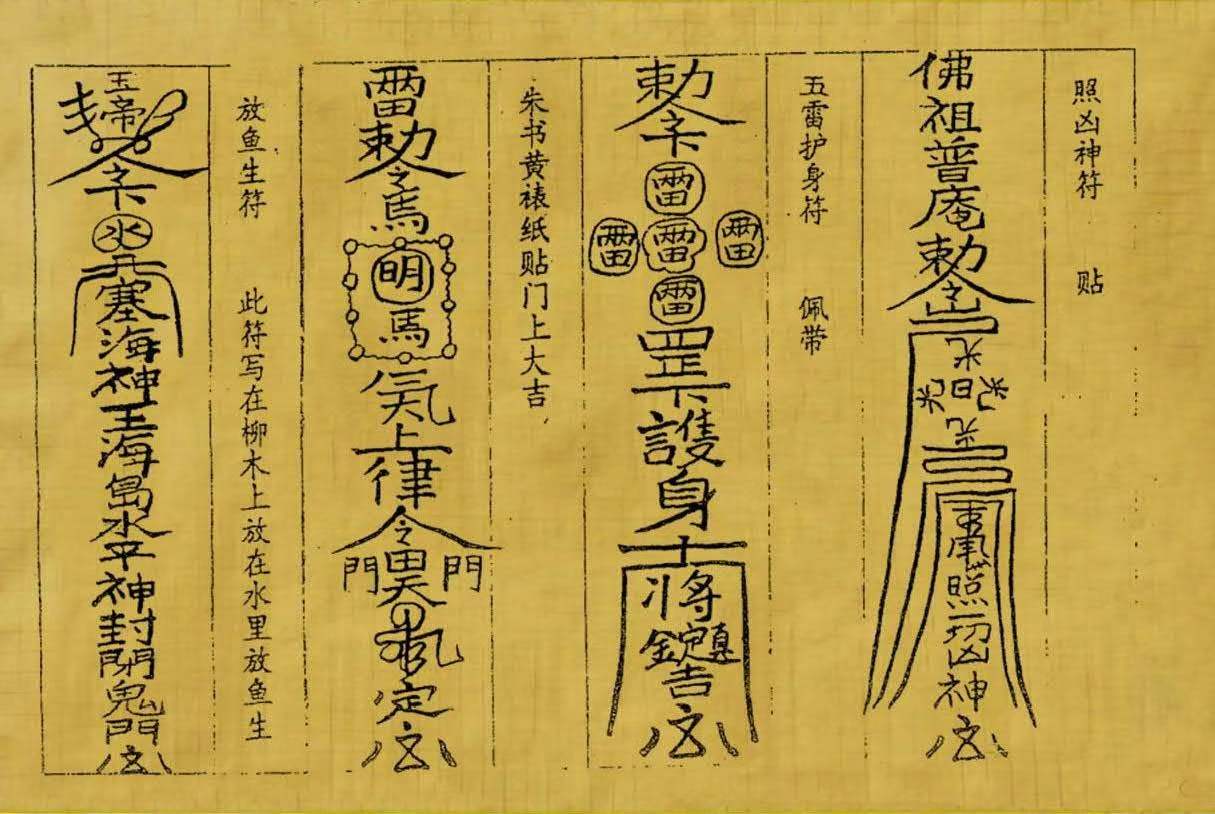 照凶神符　　贴
佛祖普庵勅令
光
光日光
光
照一切凶神
五雷护身符　　佩带
勅令
雷
雷雷雷
雷
罡下護身
將
吉
朱书黄裱纸贴门上大吉
雷勅令
明
氣上律
令
門 門
定
放鱼生符　　此符写在柳木上放在水里放鱼生
玉帝
令下
水
塞海神王海島水平神封閉鬼門